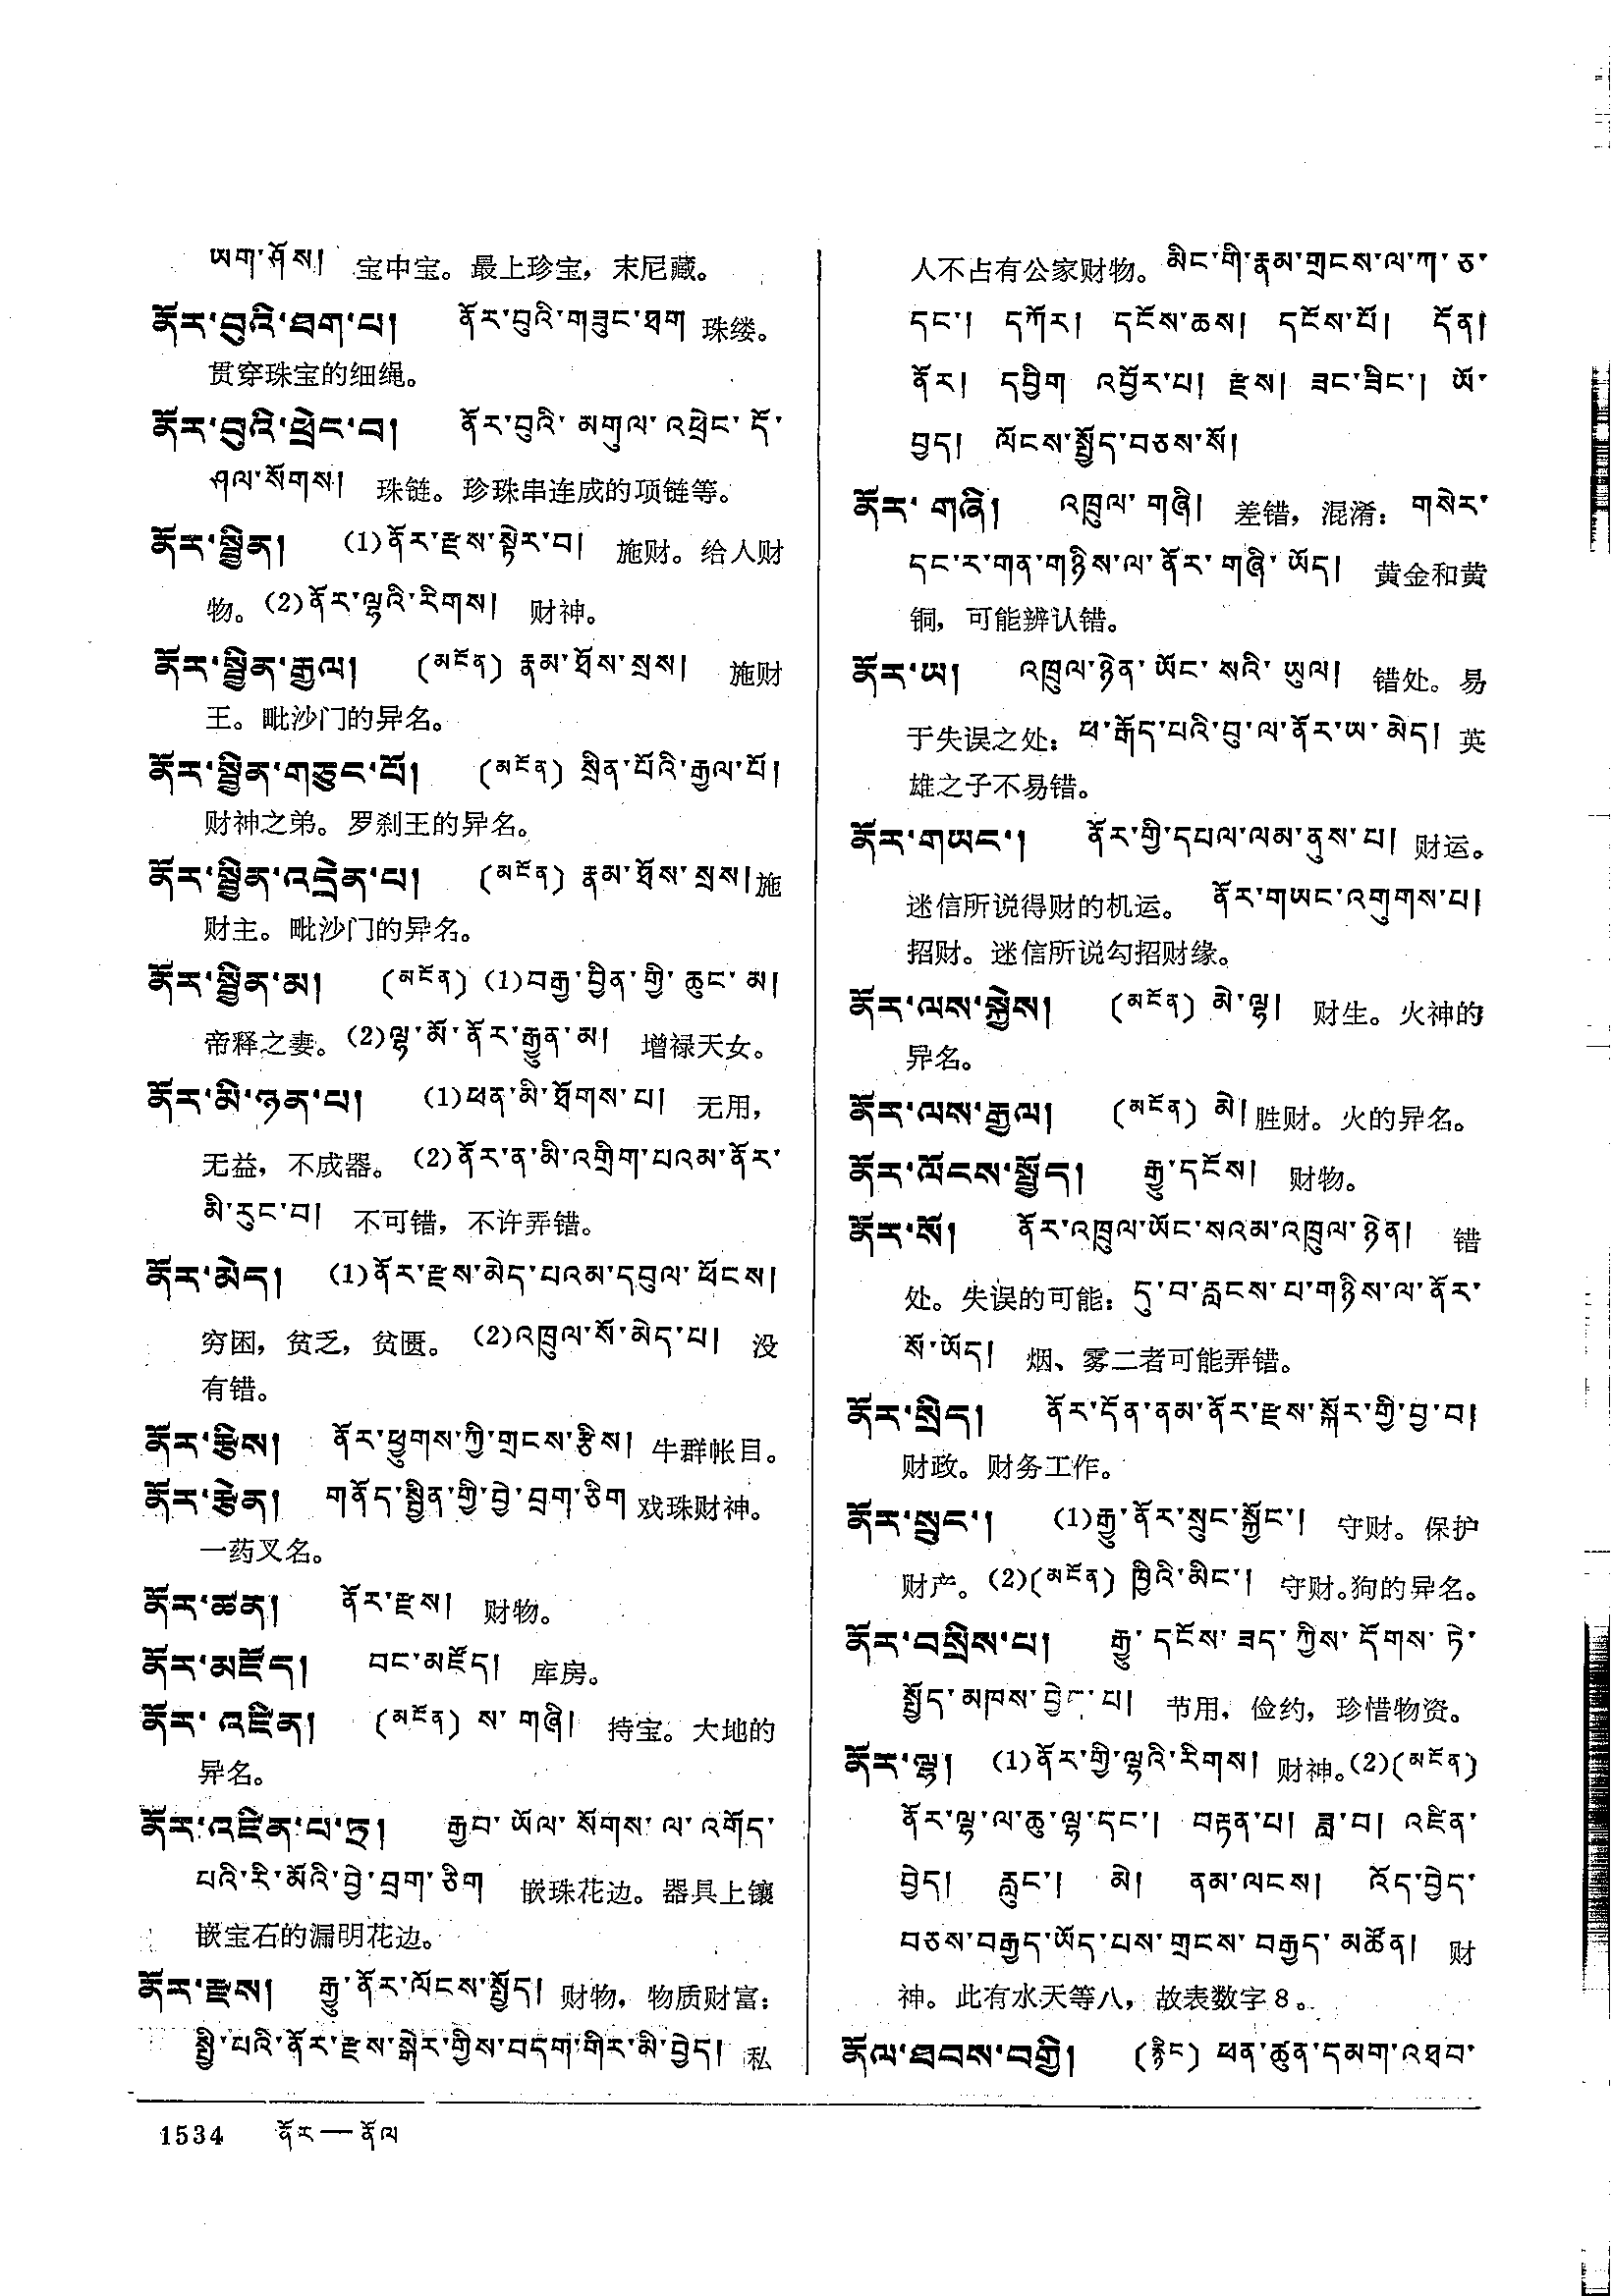 ཡག་ཤོས། 宝中宝。最上珍宝，末尼藏。
ནོར་བུའི་ཐག་པ། ནོར་བུའི་གཟུང་ཐག 珠缕。
贯穿珠宝的细绳。
ནོར་བུའི་ཕྲེང་བ། ནོར་བུའི་མགུལ་འཕྲེང་དོ་
ཤལ་སོགས། 珠链。珍珠串连成的项链等。
ནོར་སྦྱིན། (1)ནོར་རྫས་སྟེར་བ། 施财。给人财
物。(2)ནོར་ལྷའི་རིགས། 财神。
ནོར་སྦྱིན་རྒྱལ། (མངོན) རྣམ་ཐོས་སྲས། 施财
王。毗沙门的异名。
ནོར་སྦྱིན་གཅུང་པོ། (མངོན) སྲིན་པོའི་རྒྱལ་པོ།
财神之弟。罗刹王的异名。
ནོར་སྦྱིན་འདྲེན་པ། (མངོན) རྣམ་ཐོས་སྲས།施
财主。毗沙门的异名。
ནོར་སྦྱིན་མ། (མངོན) (1)བརྒྱ་བྱིན་གྱི་ཆུང་མ།
帝释之妻。(2)ལྷ་མོ་ནོར་རྒྱུན་མ། 增禄天女。
ནོར་མི་ཉན་པ། (1)ཕན་མི་ཐོགས་པ། 无用，
无益，不成器。(2)ནོར་ན་མི་འགྲིག་པའམ་ནོར་
མི་རུང་བ། 不可错，不许弄错。
ནོར་མེད། (1)ནོར་རྫས་མེད་པའམ་དབུལ་ཕོངས།
穷困，贫乏，贫匮。(2)འཁྲུལ་སོ་མེད་པ། 没
有错。
ནོར་རྩིས། ནོར་ཕྱུགས་ཀྱི་གྲངས་རྩིས། 牛群帐目。
ནོར་རྩེན། གནོད་སྦྱིན་གྱི་བྱེ་བྲག་ཅིག 戏珠财神。
一药叉名。
ནོར་ཚན། ནོར་རྫས། 财物。
ནོར་མཛོད། བང་མཛོད། 库房。
ནོར་འཛིན། (མངོན) ས་གཞི། 持宝。大地的
异名。
ནོར་འཛིན་པ་ཏྲ། རྒྱབ་ཡོལ་སོགས་ལ་འགོད་
པའི་རི་མོའི་བྱེ་བྲག་ཅིག 嵌珠花边。器具上镶
嵌宝石的漏明花边。
ནོར་རྫས། རྒྱུ་ནོར་ལོངས་སྤྱོད། 财物，物质财富：
སྤྱི་པའི་ནོར་རྫས་སྒེར་གྱིས་བདག་གིར་མི་བྱེད། 私
人不占有公家财物。མིང་གི་རྣམ་གྲངས་ལ་ཀ་ཅ་
དང་། དཀོར། དངོས་ཆས། དངོས་པོ། དོན།
ནོར། དབྱིག འབྱོར་པ། རྫས། ཟང་ཟིང་། ཡོ་
བྱད། ལོངས་སྤྱོད་བཅས་སོ།
ནོར་གཞི། འཁྲུལ་གཞི། 差错，混淆：གསེར་
དང་ར་གན་གཉིས་ལ་ནོར་གཞི་ཡོད། 黄金和黄
铜，可能辨认错。
ནོར་ཡ། འཁྲུལ་ཉེན་ཡོང་སའི་ཡུལ། 错处。易
于失误之处：ཕ་རྒོད་པའི་བུ་ལ་ནོར་ཡ་མེད། 英
雄之子不易错。
ནོར་གཡང་། ནོར་གྱི་དཔལ་ལམ་ནུས་པ། 财运。
迷信所说得财的机运。 ནོར་གཡང་འགུགས་པ།
招财。迷信所说勾招财缘。
ནོར་ལས་སྐྱེས། (མངོན) མེ་ལྷ། 财生。火神的
异名。
ནོར་ལས་རྒྱལ། (མངོན) མེ།胜财。火的异名。
ནོར་ལོངས་སྤྱོད། རྒྱུ་དངོས། 财物。
ནོར་སོ། ནོར་འཁྲུལ་ཡོང་སའམ་འཁྲུལ་ཉེན། 错
处。失误的可能：དུ་བ་རླངས་པ་གཉིས་ལ་ནོར་
སོ་ཡོད། 烟、雾二者可能弄错。
ནོར་སྲིད། ནོར་དོན་ནམ་ནོར་རྫས་སྐོར་གྱི་བྱ་བ།
财政。财务工作。
ནོར་སྲུང་། (1)རྒྱུ་ནོར་སྲུང་སྐྱོང་། 守财。保护
财产。(2)(མངོན) ཁྱིའི་མིང་། 守财。狗的异名。
ནོར་བསྲིས་པ། རྒྱུ་དངོས་ཟད་ཀྱིས་དོགས་ཏེ་
སྤྱོད་མཁས་བྱེད་པ། 节用，俭约，珍惜物资。
ནོར་ལྷ། (1)ནོར་གྱི་ལྷའི་རིགས། 财神。(2)(མངོན)
ནོར་ལྷ་ལ་ཆུ་ལྷ་དང་། བརྟན་པ། ཟླ་བ། འཛིན་
བྱེད། རླུང་། མེ། ནམ་ལངས། འོད་བྱེད་
བཅས་བརྒྱད་ཡོད་པས་གྲངས་བརྒྱད་མཚོན། 财
神。此有水天等八，故表数字8。
ནོལ་ཐབས་བགྱི། (རྙིང) ཕན་ཚུན་དམག་འཐབ་
1534 ནོར—ནོལ